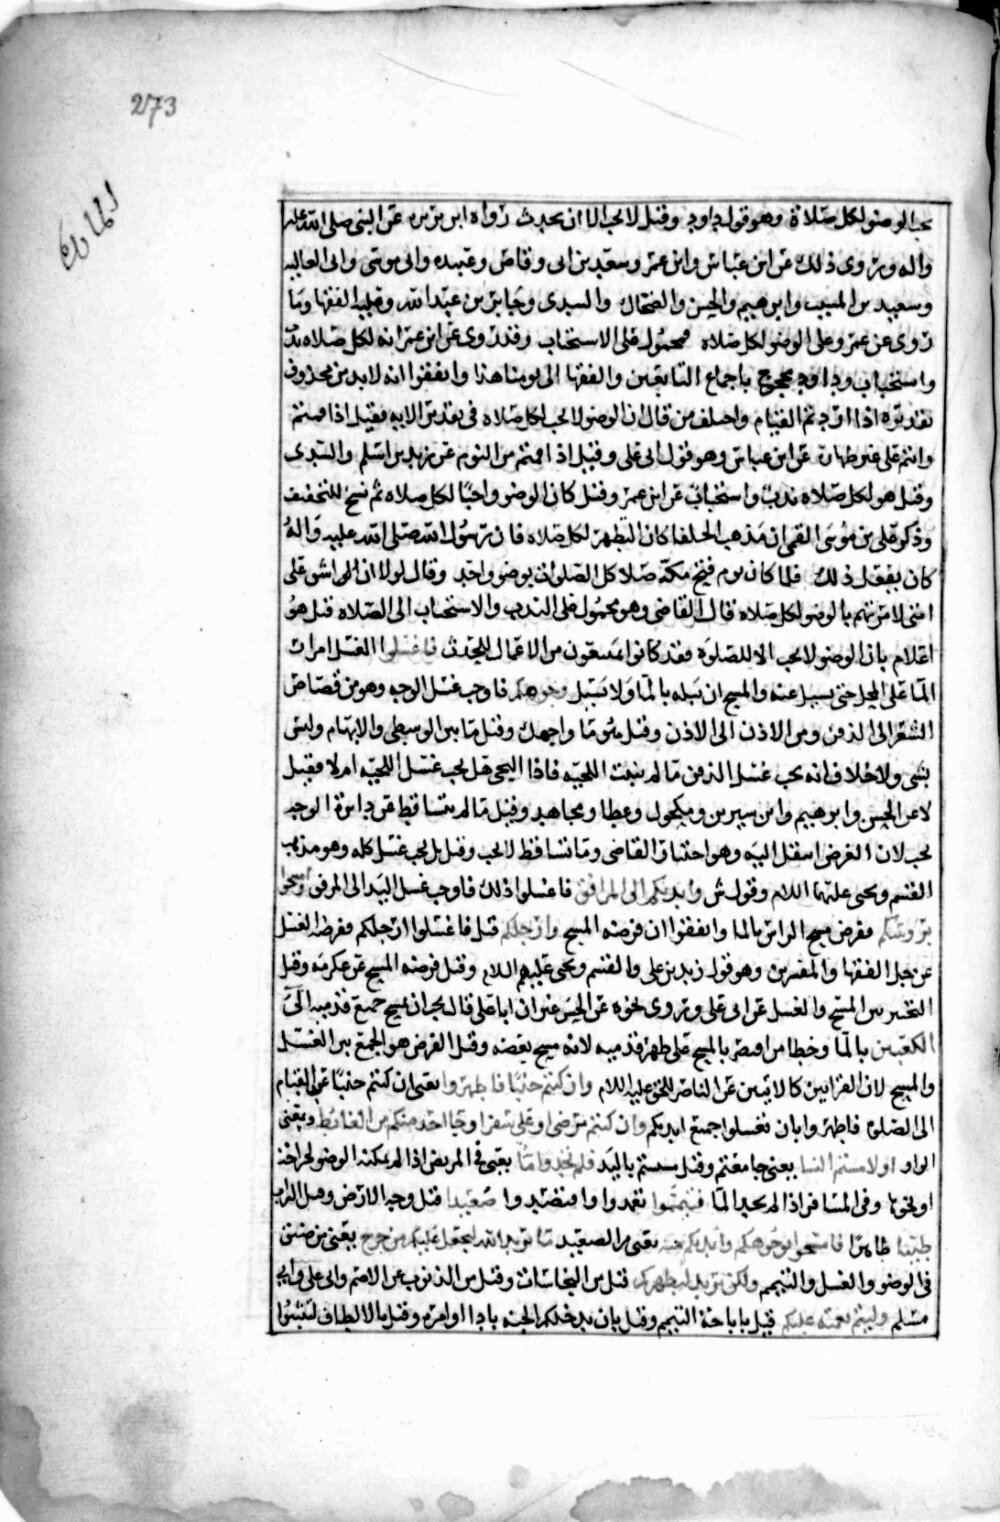 273
المائدة
يجب الوضو لكل صلاة وهو قول داود وقيل لا يجب الا ان يحدث رواه ابن بريده عن النبي صلى الله عليه
واله وروى ذلك عن ابن عباس وابن عمر وسعيد بن ابي وقاص وعبيده وابي موسى وابي العاليه
وسعيد بن المسيب وابرهيم والحسن والضحاك والسدي وجابر بن عبد الله وعليه الفقها وما
روى عن عمر وعلي الوضو لكل صلاه فمحمول على الاستحباب وقد روى عن ابن عمر انه لكل صلاه ندب
واستحباب وداود محجوج باجماع التابعين والفقها الى يومنا هذا واتفقوا انه لا بد من محذوف
تقديره اذا اردتم القيام واختلف من قال ان الوضو لا يجب لكل صلاه في تقدير الايه فقيل اذا قمتم
وانتم على غير طهاره عن ابن عباس وهو قول ابي علي وقيل اذا قمتم من النوم عن زيد بن اسلم والسدي
وقيل هو لكل صلاه ندب واستحباب عن ابن عمر وقيل كان الوضو واجبا لكل صلاه ثم نسخ للتخفيف
وذكر علي بن موسى القمي ان مذهب الخلفا كان التطهر لكل صلاه فان رسول الله صلى الله عليه واله
كان يفعل ذلك فلما كان يوم فتح مكة صلا كل الصلوات بوضو واحد وقال لولا ان اشق على
امتي لامرتهم بالوضو لكل صلاه قال القاضي وهو محمول على الندب والاستحباب الى الصلاه قيل هو
اعلام بان الوضو لا يجب الا للصلوة فقد كانوا يمتنعون من الاعمال للحدث فاغسلوا الغسل امرار
الما على المحل حتى يسيل عنه والمسح ان يبله بالما ولا يسيل وجوهكم فاوجب غسل الوجه وهو من قصاص
الشعر الى الذقن ومن الاذن الى الاذن وقيل ما واجهك وقيل ما بين الوسطى والابهام وليس
بشي ولا خلاف انه يجب غسل الذقن ما لم ينبت اللحيه فاذا التحى هل يجب غسل اللحيه ام لا فقيل
لا عن الحسن وابرهيم وابن سيرين ومكحول وعطا ومجاهد وقيل ما لم يتساقط عن دائرة الوجه
يجب لان الفرض انتقل اليه وهو اختيار القاضي وما تساقط لا يجب وقيل بل يجب غسل كله وهو مذهب
القسم ويحيى عليهما السلام وقوله وايديكم الى المرافق فاغسلوا ذلك فاوجب غسل اليد الى المرفق وامسحوا
بروسكم ففرض مسح الراس بالما واتفقوا ان فرضه المسح وارجلكم قيل فاغسلوا ارجلكم ففرضه الغسل
عن جل الفقها والمفسرين وهو قول زيد بن علي والقسم ويحيى عليهم السلام وقيل فرضه المسح عن عكرمه وقيل
التخيير بين المسح والغسل عن ابي علي وروى نحوه عن الحسن غير ان ابا علي قال يجب ان يمسح جميع قدميه الى
الكعبين بالما وخطا من اقتصر بالمسح على ظهر قدميه لانه مسح بعضه وقيل الفرض هو الجمع بين الغسل
والمسح لان القراتين كالايتين عن الناصر للحق عليه السلام وان كنتم جنبا فاطهروا يعني ان كنتم جنبا عن القيام
الى الصلوة فاطهروا بان تغسلوا جميع ابدانكم وان كنتم مرضى او على سفر او جا احد منكم من الغائط ومعنى
الواو او لامستم النسا يعني جامعتم وقيل مسستم باليد فلم تجدوا ما يعني في المريض اذا لم يمكنه الوضو لجراحه
او نحوها وفي المسافر اذا لم يجد الما فتيمموا تعمدوا واقصدوا صعيدا قيل وجه الارض وقيل التراب
طيبا طاهرا فامسحوا بوجوهكم وايديكم منه يعني من الصعيد ما يريد الله ليجعل عليكم من حرج يعني من ضيق
في الوضو والغسل والتيمم ولكن يريد ليطهركم قيل من النجاسات وقيل من الذنوب عن الاصم وابي علي وابي
مسلم وليتم نعمته عليكم قيل باباحة التيمم وقيل بان يدخلكم الجنه باداء اوامره وقيل بالالطاف لتثبتوا